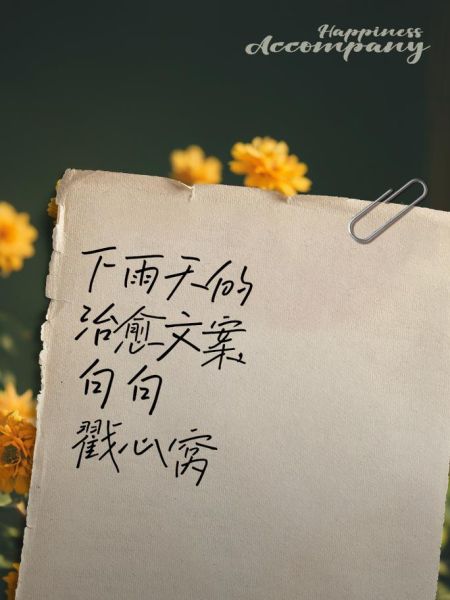 Happiness
Accompany
下雨天的
治愈文案
句句
戳心窝